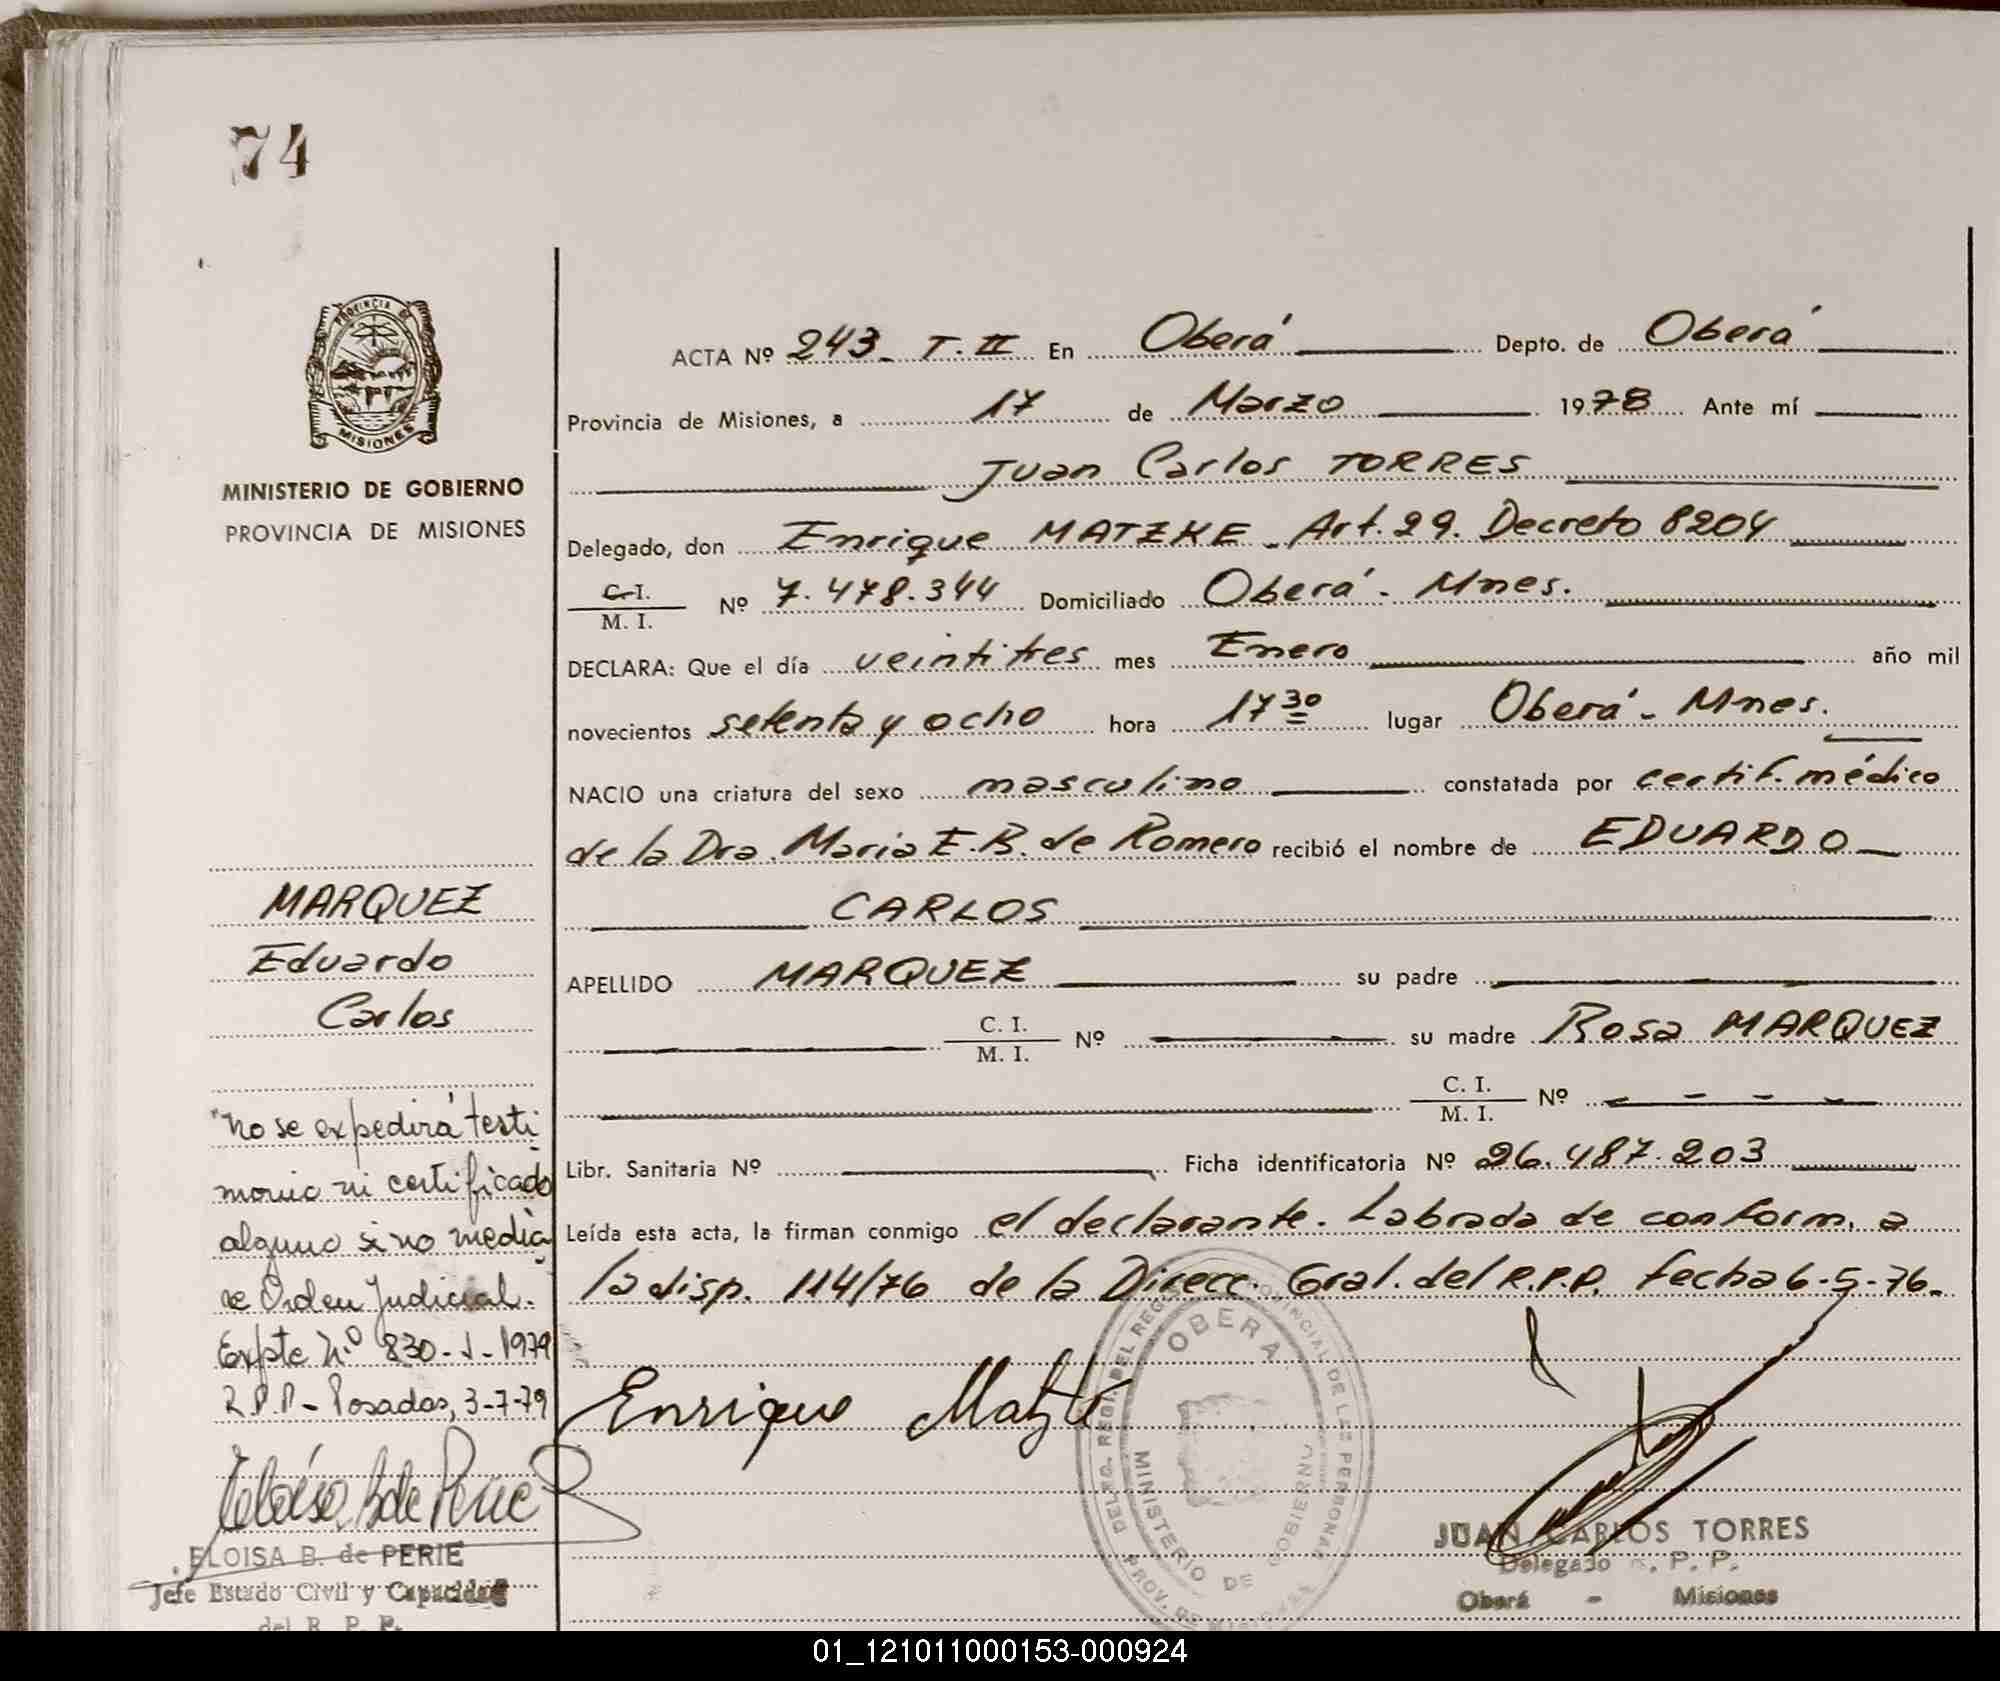 74
PROVINCIA DE
MISIONES
MINISTERIO DE GOBIERNO
PROVINCIA DE MISIONES
ACTA Nº 243_ T. II En Oberá Depto. de Oberá
Provincia de Misiones, a 17 de Marzo 1978 Ante mí
Juan Carlos TORRES
Delegado, don Enrique MATZKE_ Art. 29. Decreto 8204
C. I.
M. I. Nº 7.478.344 Domiciliado Oberá - Mnes.
DECLARA: Que el día veintitres mes Enero año mil
novecientos setenta y ocho hora 17 30 lugar Oberá - Mnes.
NACIO una criatura del sexo masculino constatada por certif. médico
de la Dra. Maria E. B. de Romero recibió el nombre de EDUARDO
CARLOS
APELLIDO MARQUEZ su padre
C. I.
M. I. Nº su madre Rosa MARQUEZ
C. I.
M. I. Nº - - - -
Libr. Sanitaria Nº Ficha identificatoria Nº 26.487.203
Leída esta acta, la firman conmigo el declarante. Labrada de conform. a
la disp. 114/76 de la Direcc. Gral. del R.P.P. fecha 6-5-76.
Enrique Matzke
MARQUEZ
Eduardo
Carlos
"No se expedirá testi
monio ni certificado
alguno si no media
re Orden Judicial.
Expte N.º 830-J-1979
R.P.P - Posadas, 3-7-79
Eloísa B de Perié
ELOISA B. de PERIE
Jefe Estado Civil y Capacidad
del R. P. P.
DELEG. REGI. DEL REG. PROVINCIAL DE LAS PERSONAS
OBERA
MINISTERIO DE GOBIERNO
PROV. DE MISIONES
JUAN CARLOS TORRES
Delegado R. P. P.
Oberá - Misiones
01_121011000153-000924